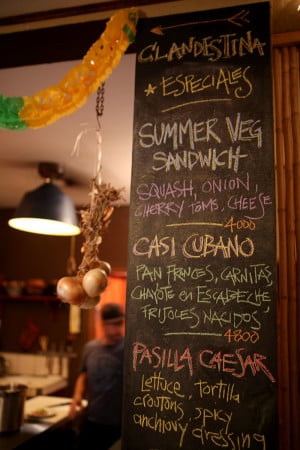 CLANDESTINA
★ ESPECIALES
SUMMER VEG
SANDWICH
SQUASH, ONION,
CHERRY TOMS, CHEESE
4000
CASI CUBANO
PAN FRANCES, CARNITAS
CHAYOTE en ESCABECHE,
FRIJOLES NACIDOS
4800
PASILLA CAESAR
Lettuce, tortilla
croutons, spicy
anchovy dressing